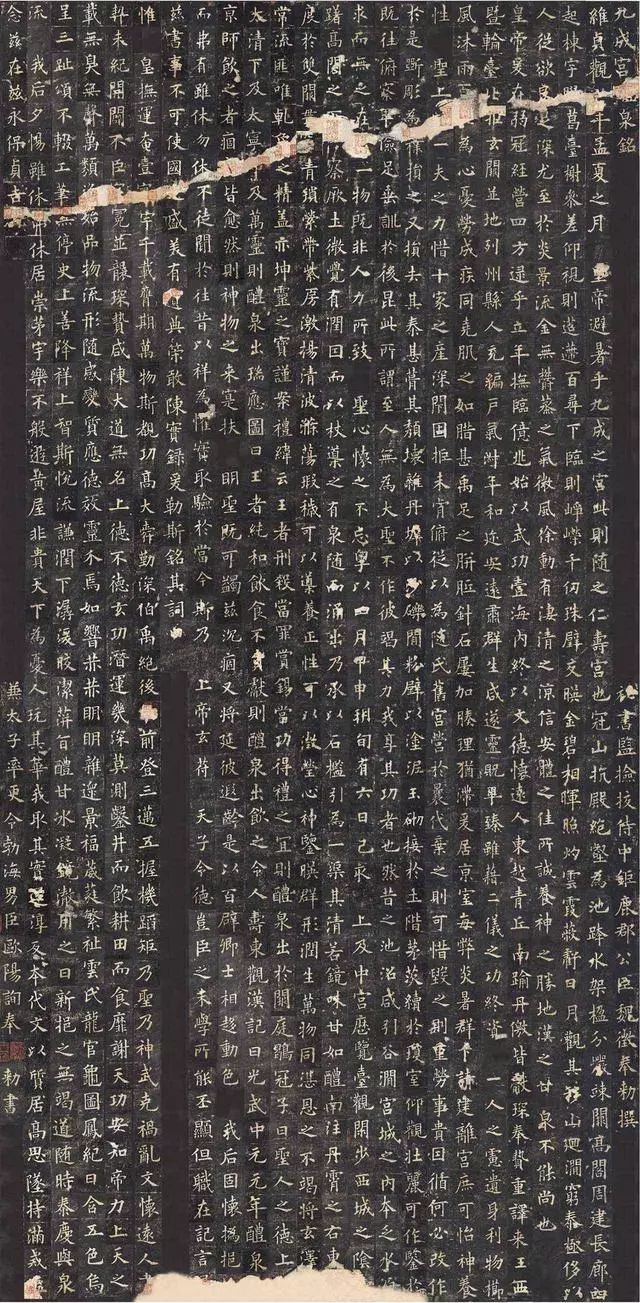 九成宮泉銘 秘書監檢校侍中鉅鹿郡公臣魏徵奉勅撰
維貞觀年孟夏之月 皇帝避暑乎九成之宮此則隨之仁壽宮也冠山抗殿絕壑為池跨水架楹分巖竦闕高閣周建長廊四
起棟宇膠葛臺榭參差仰視則迢遰百尋下臨則崢嶸千仞珠璧交暎金碧相暉照灼雲霞蔽虧日月觀其移山迴澗窮泰極侈以
人從欲良足深尤至於炎景流金無鬱蒸之氣微風徐動有淒清之涼信安體之佳所誠養神之勝地漢之甘泉不能尚也
皇帝爰在弱冠經營四方逮乎立年撫臨億兆始以武功壹海內終以文德懷遠人東越青丘南踰丹儌皆獻琛奉贄重譯來王西
暨輪臺北拒玄闕並地列州縣人充編戶氣淑年和迩安遠肅群生咸遂靈貺畢臻雖藉二儀之功終資 一人之慮遺身利物櫛
風沐雨為心憂勞成疾同堯肌之如腊甚禹足之胼胝針石屢加腠理猶滯爰居京室每弊炎暑群下請建離宮庶可怡神養
性 聖上一夫之力惜十家之產深閉固拒未肯俯從以為隨氏舊宮營於曩代棄之則可惜毀之則重勞事貴因循何必改作
於是斲彫為樸損之又損去其泰甚葺其頹壞雜丹墀以沙礫間粉壁以塗泥玉砌接於土階茅茨續於瓊室仰觀壯麗可作鑒於
既往俯察卑儉足垂訓於後昆此所謂至人無為大聖不作彼竭其力我享其功者也然昔之池沼咸引谷澗宮城之內本乏水源
求而無之在一物既非人力所致 聖心懷之不忘粵以四月甲申朔旬有六日己亥 上及中宮歷覽臺觀閑步西城之陰
躊躇高閣之下俯察厥土微覺有潤因而以杖導之有泉隨而涌出乃承以石檻引為一渠其清若鏡味甘如醴南注丹霄之右東流
度於雙闕貫穿青瑣縈帶紫房激揚清波滌蕩瑕穢可以導養正性可以澂瑩心神鑒暎群形潤生萬物同湛恩之不竭將玄澤之
常流匪唯乾象之精蓋亦坤靈之寶謹案禮緯云王者刑殺當罪賞錫當功得禮之宜則醴泉出於闕庭鶡冠子曰聖人之德上及
太清下及太寧中及萬靈則醴泉出瑞應圖曰王者純和飲食不貢獻則醴泉出飲之令人壽東觀漢記曰光武中元元年醴泉出
京師飲之者痼疾皆愈然則神物之來寔扶 明聖既可蠲茲沉痼又將延彼遐齡是以百辟卿士相趍動色 我后固懷撝挹推
而弗有雖休勿休不徒聞於往昔以祥為懼實取驗於當今斯乃 上帝玄符 天子令德豈臣之末學所能丕顯但職在記言屬
茲書事不可使國之盛美有遺典策敢陳實錄爰勒斯銘其詞曰
惟皇撫運奄壹寰宇千載膺期萬物斯覩功高大舜勤深伯禹絕後光前登三邁五握機蹈矩乃聖乃神武克禍亂文懷遠人書
契未紀開闢不臣冠冕並襲琛贄咸陳大道無名上德不德玄功潛運幾深莫測鑿井而飲耕田而食靡謝天功安知帝力上天之
載無臭無聲萬類資始品物流形隨感變質應德效靈介焉如響赫赫明明雜遝景福葳蕤繁祉雲氏龍官龜圖鳳紀日含五色烏
呈三趾頌不輟工筆無停史上善降祥上智斯悅流謙潤下潺湲皎潔蓱旨醴甘冰凝鏡澈用之日新挹之無竭道隨時泰慶與泉
流我后夕惕雖休弗休居崇茅宇樂不般遊黃屋非貴天下為憂人玩其華我取其實還淳反本代文以質居高思墜持滿戒溢
念茲在茲永保貞吉 兼太子率更令勃海男臣歐陽詢奉勅書